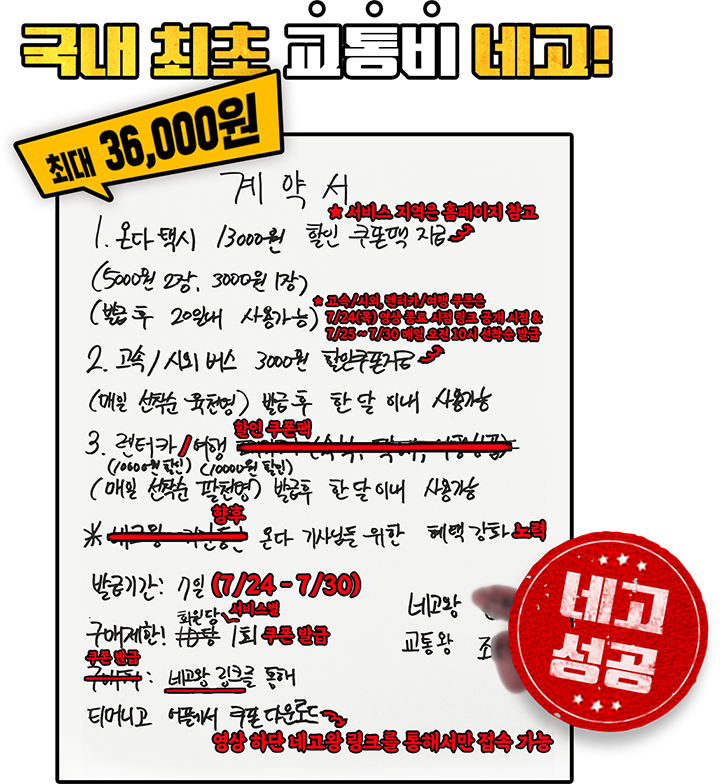 국내 최초 교통비 네고!
최대 36,000원
계약서
★ 서비스 지역은 홈페이지 참고
1. 온다 택시 13000원 할인 쿠폰팩 지급
(5000원 2장, 3000원 1장)
(발급 후 20일내 사용가능)
★ 고속/시외, 렌터카/여행 쿠폰은
7/24(목) 영상 종료 시점 링크 공개 시점 &
7/25 ~ 7/30 매일 오전 10시 선착순 발급
2. 고속/시외 버스 3000원 할인쿠폰지급
(매일 선착순 육천명) 발급 후 한 달 이내 사용가능
3. 렌터카/여행 할인 쿠폰팩
(10000원 할인) (10000원 할인)
(매일 선착순 팔천명) 발급후 한 달 이내 사용가능
※ 향후 온다 기사님들 위한 혜택 강화 노력
발급기간: 7일 (7/24 - 7/30)
네고왕
구매제한! 회원당 서비스별 1회 쿠폰 발급
교통왕 조
쿠폰 발급 : 네고왕 링크를 통해
티머니고 어플에서 쿠폰 다운로드
영상 하단 네고왕 링크를 통해서만 접속 가능
네고
성공